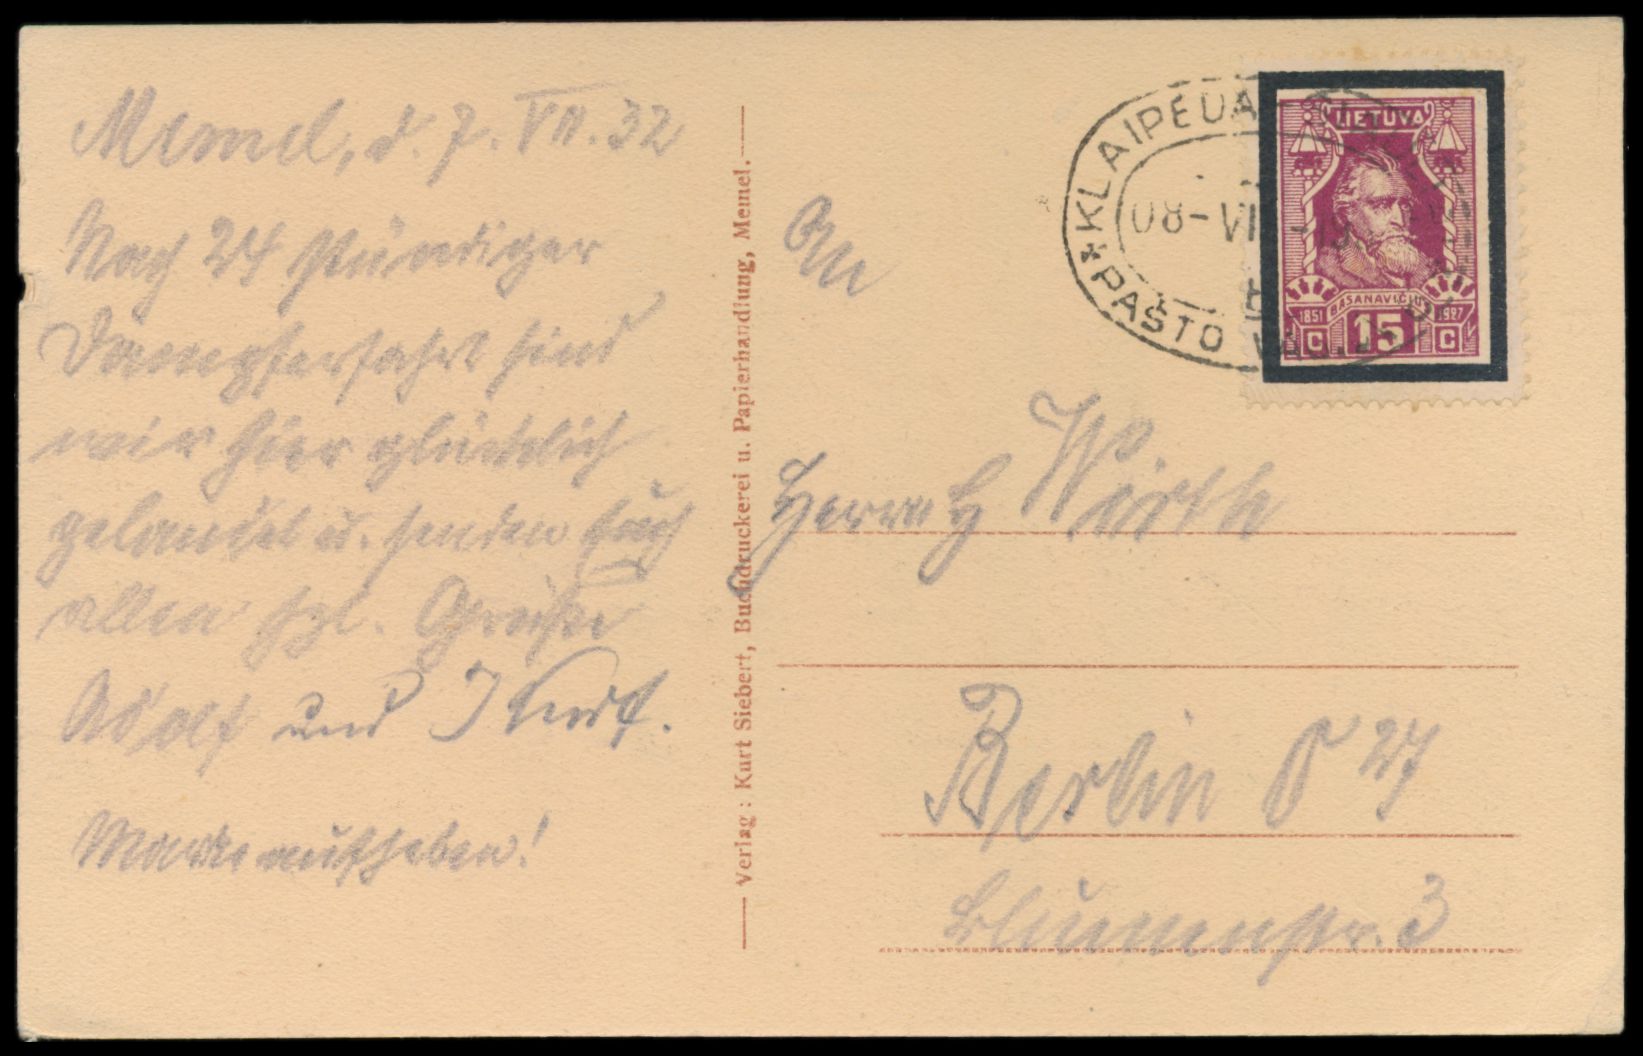 Memel, d. 7. VII. 32
Nach 24 stündiger
Dampferfahrt sind
wir hier glücklich
gelandet u. senden Euch
allen hzl. Grüße
Adolf und
Marke aufheben!
Verlag: Kurt Siebert, Buchdruckerei u. Papierhandlung, Memel.
An
Herrn H Wirth
Berlin O 27
Blumenstr. 3
KLAIPEDA
08-VII-19
PAŠTO VAG.
LIETUVA
BASANAVIČIUS
1851 1927
15
C C